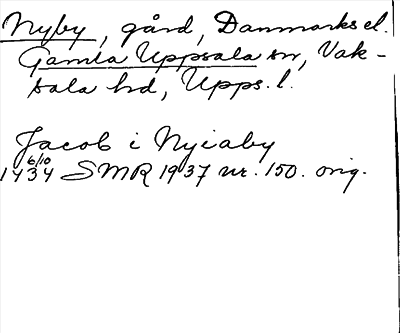 Nyby, gård, Danmarks el.
Gamla Uppsala sn, Vak-
sala hd, Upps. l.
Jacob i Nyiaby
1434 6/10 SMR 1937 nr. 150. orig.